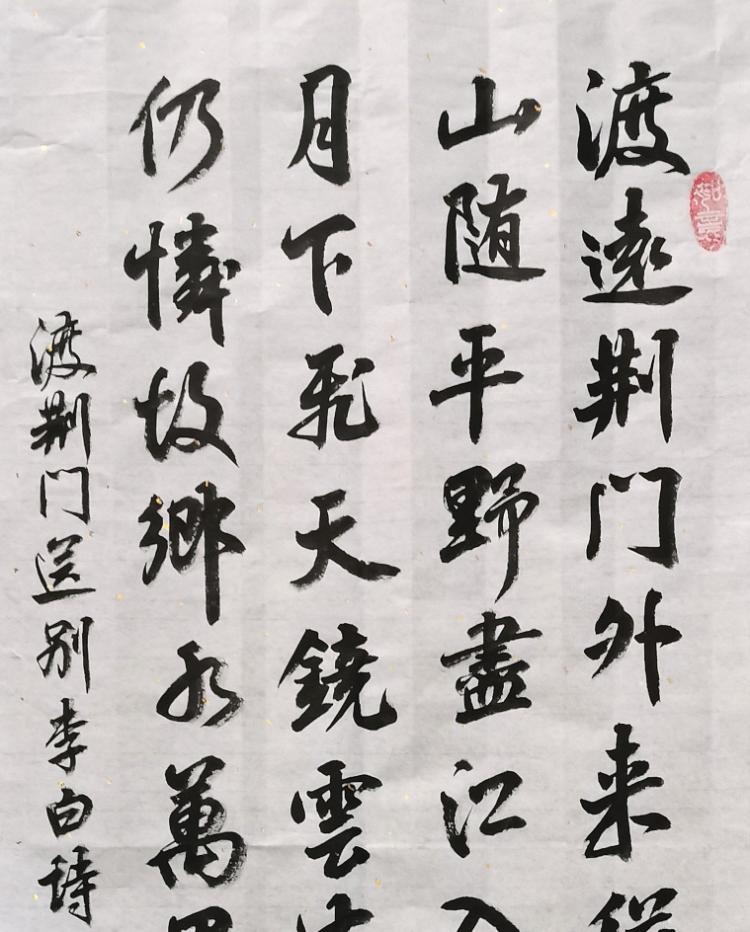 渡远荆门外来從
山随平野盡江入
月下飛天鏡雲生
仍憐故鄉水萬里
渡荆门送别李白詩